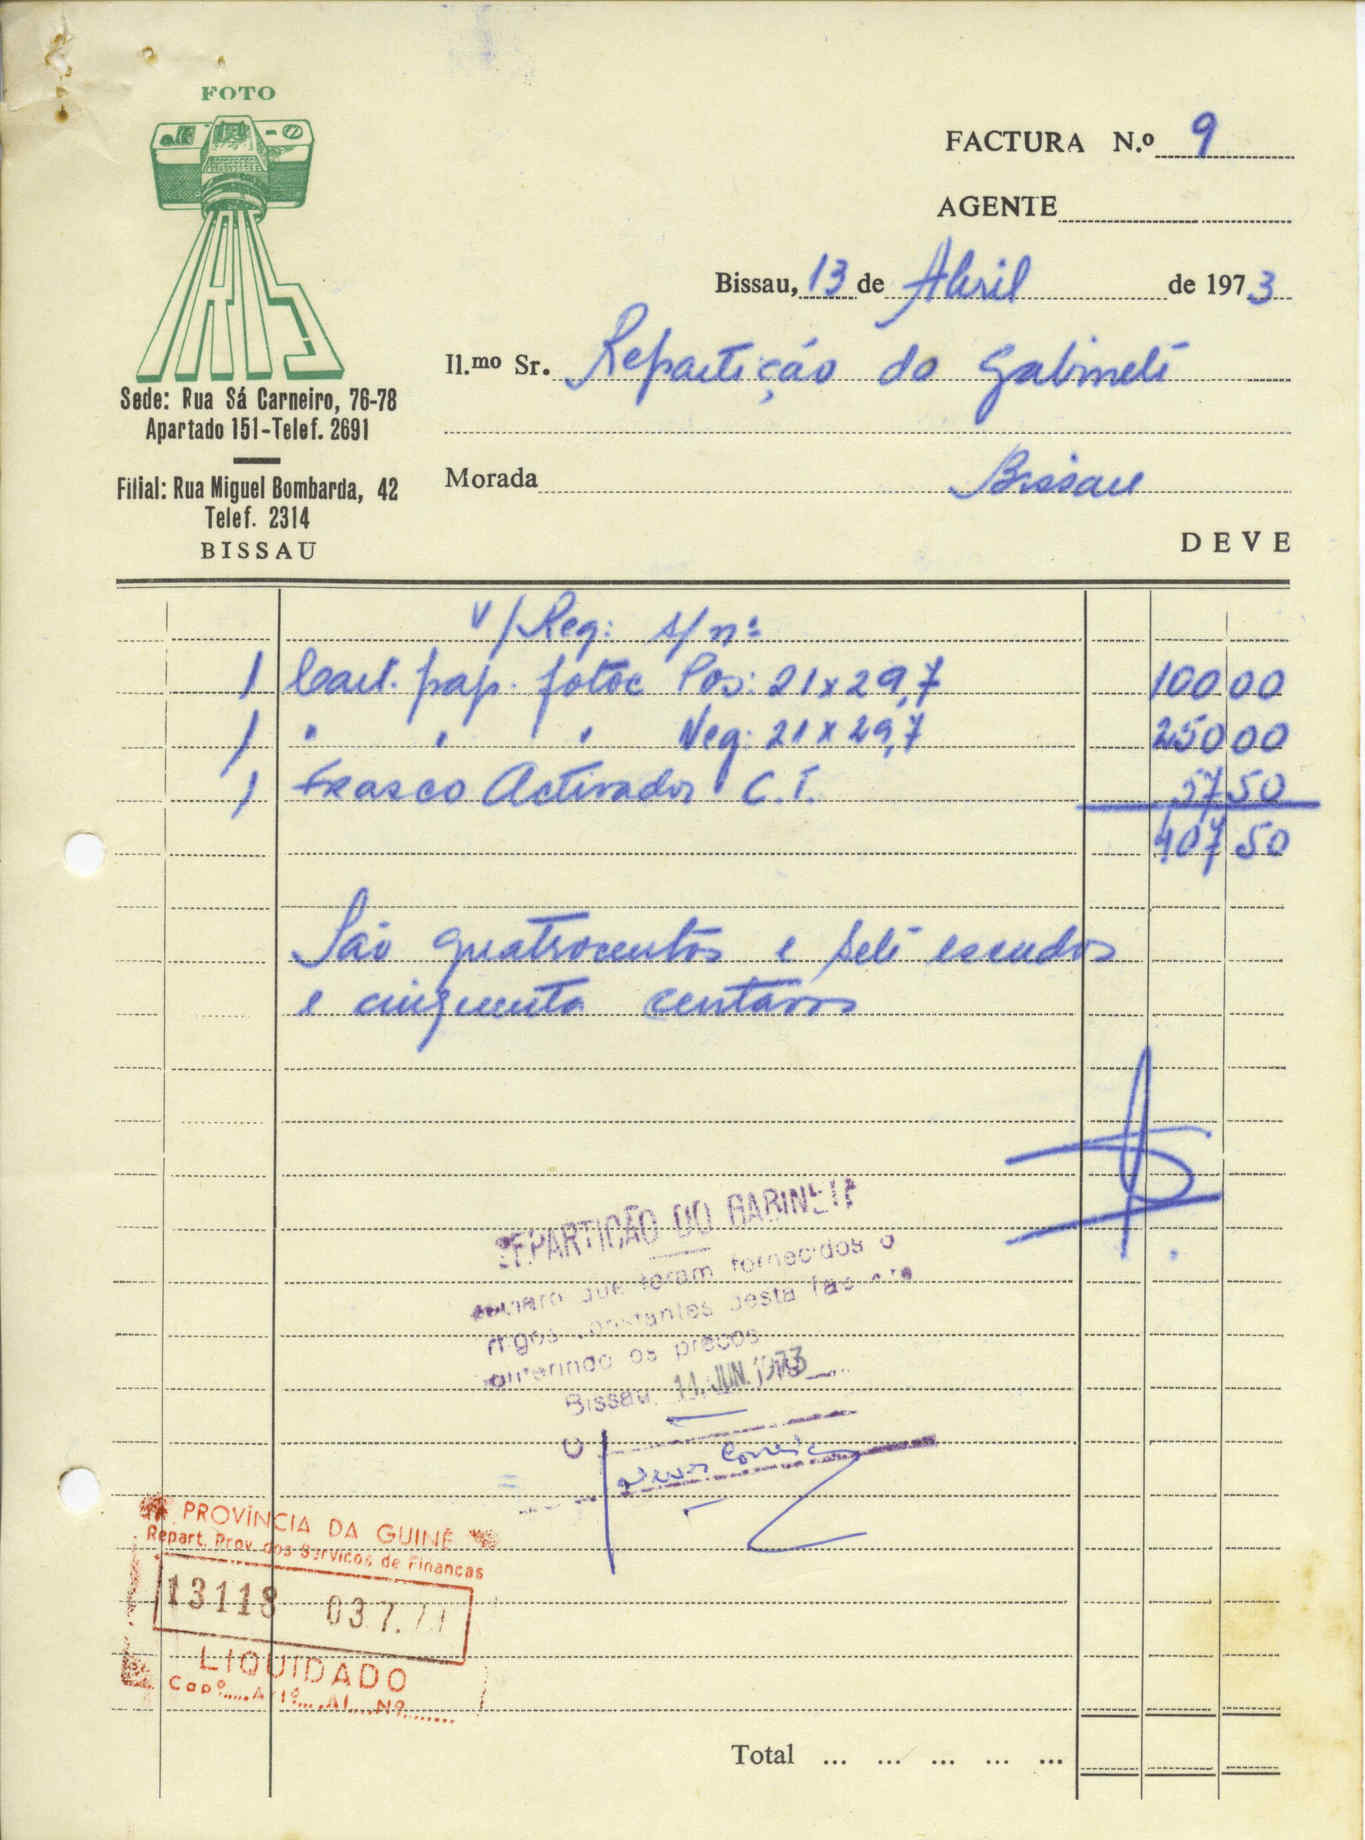 FOTO
IRIS
Sede: Rua Sá Carneiro, 76-78
Apartado 151-Telef. 2691
Filial: Rua Miguel Bombarda, 42
Telef. 2314
BISSAU
FACTURA N.º 9
AGENTE
Bissau, 13 de Abril de 1973
Il.mo Sr. Repartição do Gabinete
Morada Bissau
DEVE
V/Req: s/nº
1 Cart. pap. fotoc Pos: 21x29,7 100 00
1 " " " Neg: 21x29,7 250 00
1 Frasco Activador C.T. 57 50
407 50
São quatrocentos e sete escudos
e cinquenta centavos
REPARTIÇÃO DO GABINETE
que foram fornecidos o
constantes desta
os preços
Bissau, 11. JUN. 1973
O
PROVÍNCIA DA GUINÉ
Repart. Prov. dos Serviços de Finanças
13118 03.7.
LIQUIDADO
Capº.... Artº.... Al.... Nº.......
Total ... ... ... ... ...